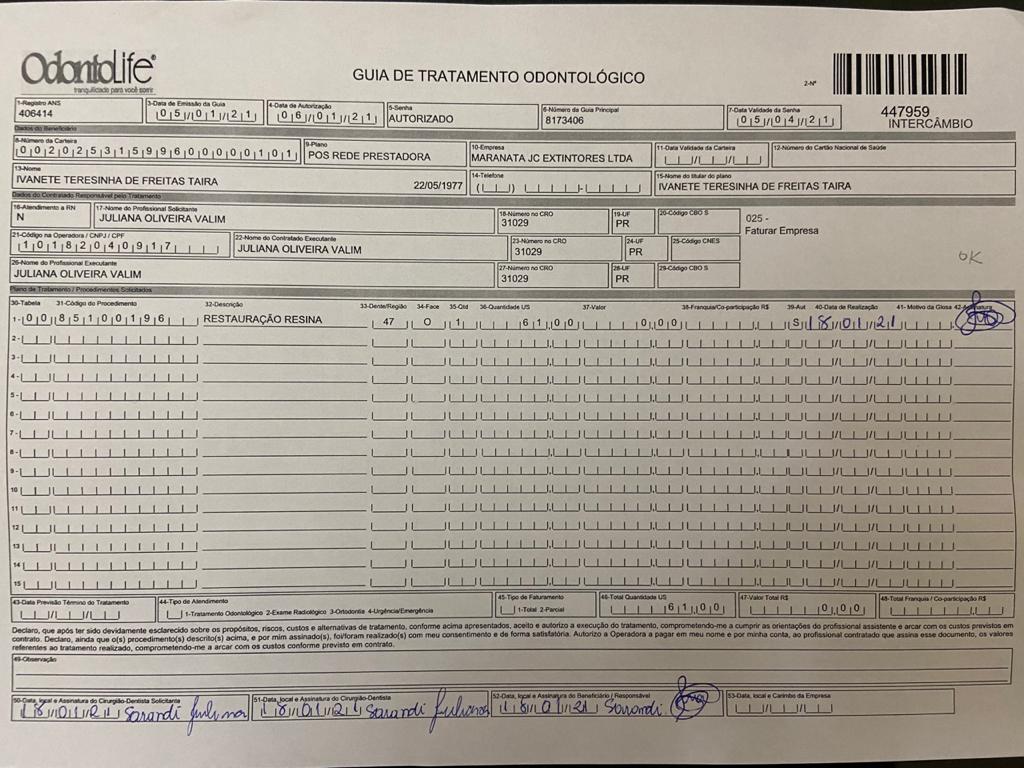 OdontoLife®
tranquilidade para você sorrir
GUIA DE TRATAMENTO ODONTOLÓGICO
2-Nº
447959
INTERCÂMBIO
1-Registro ANS 3-Data de Emissão da Guia 4-Data de Autorização 5-Senha 6-Número da Guia Principal 7-Data Validade da Senha
406414 05/01/21 06/01/21 AUTORIZADO 8173406 05/04/21
Dados do Beneficiário
8-Número da Carteira 9-Plano 10-Empresa 11-Data Validade da Carteira 12-Número do Cartão Nacional de Saúde
02025315996000000101 POS REDE PRESTADORA MARANATA JC EXTINTORES LTDA
13-Nome 14-Telefone 15-Nome do titular do plano
IVANETE TERESINHA DE FREITAS TAIRA 22/05/1977 IVANETE TERESINHA DE FREITAS TAIRA
Dados do Contratado Responsável pelo Tratamento
16-Atendimento a RN 17-Nome do Profissional Solicitante 18-Número no CRO 19-UF 20-Código CBO S
N JULIANA OLIVEIRA VALIM 31029 PR
025 -
Faturar Empresa
21-Código na Operadora / CNPJ / CPF 22-Nome do Contratado Executante 23-Número no CRO 24-UF 25-Código CNES
10182040917 JULIANA OLIVEIRA VALIM 31029 PR
OK
26-Nome do Profissional Executante 27-Número no CRO 28-UF 29-Código CBO S
JULIANA OLIVEIRA VALIM 31029 PR
Plano de Tratamento / Procedimentos Solicitados
30-Tabela 31-Código do Procedimento 32-Descrição 33-Dente/Região 34-Face 35-Qtd 36-Quantidade US 37-Valor 38-Franquia/Co-participação R$ 39-Aut 40-Data de Realização 41- Motivo da Glosa 42-Assinatura
1- 00 85100196 RESTAURAÇÃO RESINA 47 O 1 61,00 0,00 S 18/01/21
2-
3-
4-
5-
6-
7-
8-
9-
10
11
12
13
14
15
43-Data Previsão Término do Tratamento 44-Tipo de Atendimento 45-Tipo de Faturamento 46-Total Quantidade US 47-Valor Total R$ 48-Total Franquia / Co-participação R$
1-Tratamento Odontológico 2-Exame Radiológico 3-Ortodontia 4-Urgência/Emergência 1-Total 2-Parcial 61,00 0,00
Declaro, que após ter sido devidamente esclarecido sobre os propósitos, riscos, custos e alternativas de tratamento, conforme acima apresentados, aceito e autorizo a execução do tratamento, comprometendo-me a cumprir as orientações do profissional assistente e arcar com os custos previstos em
contrato. Declaro, ainda que o(s) procedimento(s) descrito(s) acima, e por mim assinado(s), foi/foram realizado(s) com meu consentimento e de forma satisfatória. Autorizo a Operadora a pagar em meu nome e por minha conta, ao profissional contratado que assina esse documento, os valores
referentes ao tratamento realizado, comprometendo-me a arcar com os custos conforme previsto em contrato.
49-Observação
50-Data, local e Assinatura do Cirurgião-Dentista Solicitante 51-Data, local e Assinatura do Cirurgião-Dentista 52-Data, local e Assinatura do Beneficiário / Responsável 53-Data, local e Carimbo da Empresa
18/01/21 Sarandi Juliana 18/01/21 Sarandi Juliana 18/01/21 Sarandi